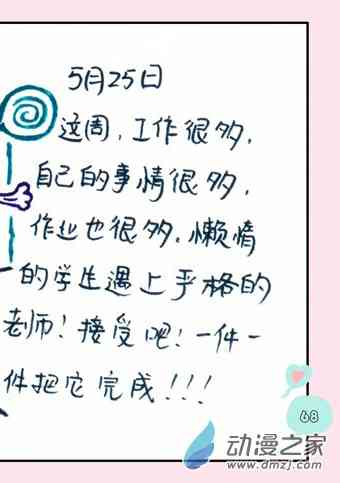 5月25日
这周,工作很多,
自己的事情很多,
作业也很多,懒惰
的学生遇上严格的
老师!接受吧!一件一
件把它完成!!!
68
动漫之家
www.dmzj.com